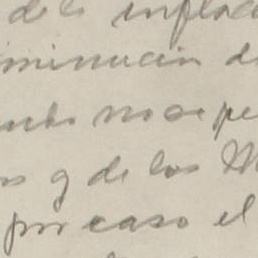 de la inflaci
minucion d
no se pe
s y de los M
por caso el